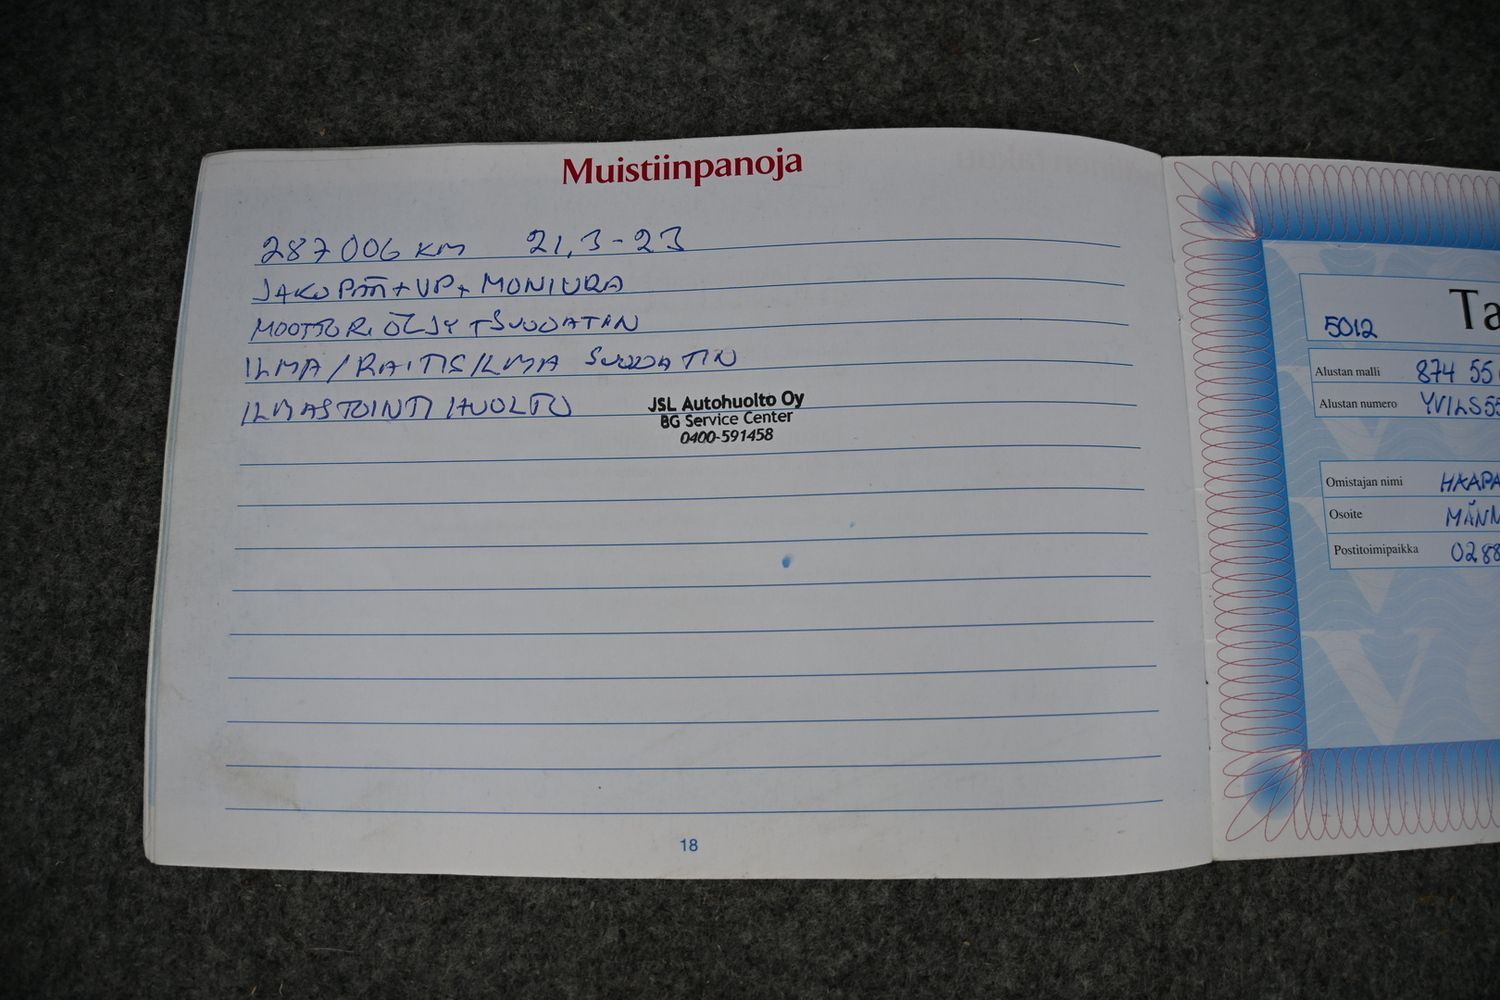 Muistiinpanoja
287006 KM 21,3-23
JAKOPÄÄ+VP+MONIURA
MOOTTORIÖLJY+SUODATIN
ILMA/RAITISILMA SUODATIN
ILMASTOINTI HUOLTO
JSL Autohuolto Oy
BG Service Center
0400-591458
18
Ta
5012
Alustan malli 874 55
Alustan numero YV1LS55
Omistajan nimi HAAPA
Osoite MÄNN
Postitoimipaikka 0288